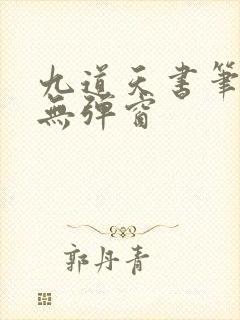 九道天书筆
無彈窗
郭丹青